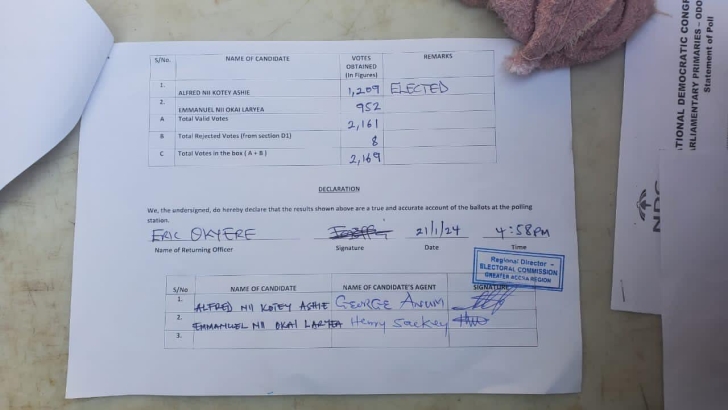 S/No. NAME OF CANDIDATE VOTES OBTAINED (In Figures) REMARKS
1. ALFRED NII KOTEY ASHIE 1,209 ELECTED
2. EMMANUEL NII OKAI LARYEA 952
A Total Valid Votes 2,161
B Total Rejected Votes (from section D1) 8
C Total Votes in the box ( A + B ) 2,169
DECLARATION
We, the undersigned, do hereby declare that the results shown above are a true and accurate account of the ballots at the polling
station.
ERIC OKYERE 21/1/24 4:58PM
Name of Returning Officer Signature Date Time
Regional Director -
ELECTORAL COMMISSION
GREATER ACCRA REGION
S/No NAME OF CANDIDATE NAME OF CANDIDATE'S AGENT SIGNATURE
1. ALFRED NII KOTEY ASHIE GEORGE
2. EMMANUEL NII OKAI LARYEA Henry Sackey
3.
TIONAL DEMOCRATIC CONGR
RLIAMENTARY PRIMARIES - ODO
Statement of Poll
NDC